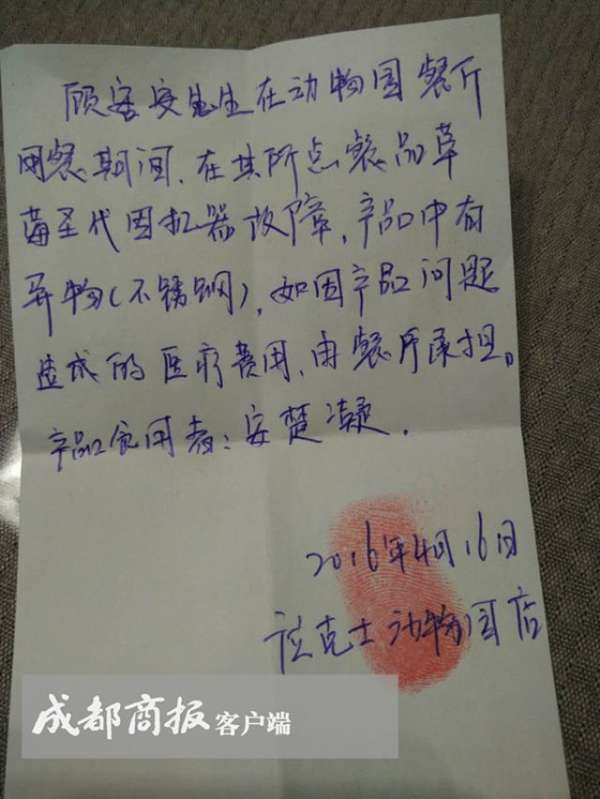 顾客安先生在动物园餐厅
用餐期间、在其所点餐品草
莓圣代因机器故障，产品中有
异物(不锈钢)，如因产品问题
造成的医疗费用，由餐厅承担。
产品食用者：安楚凝.
2016年4月16日
德克士动物园店
成都商报客户端